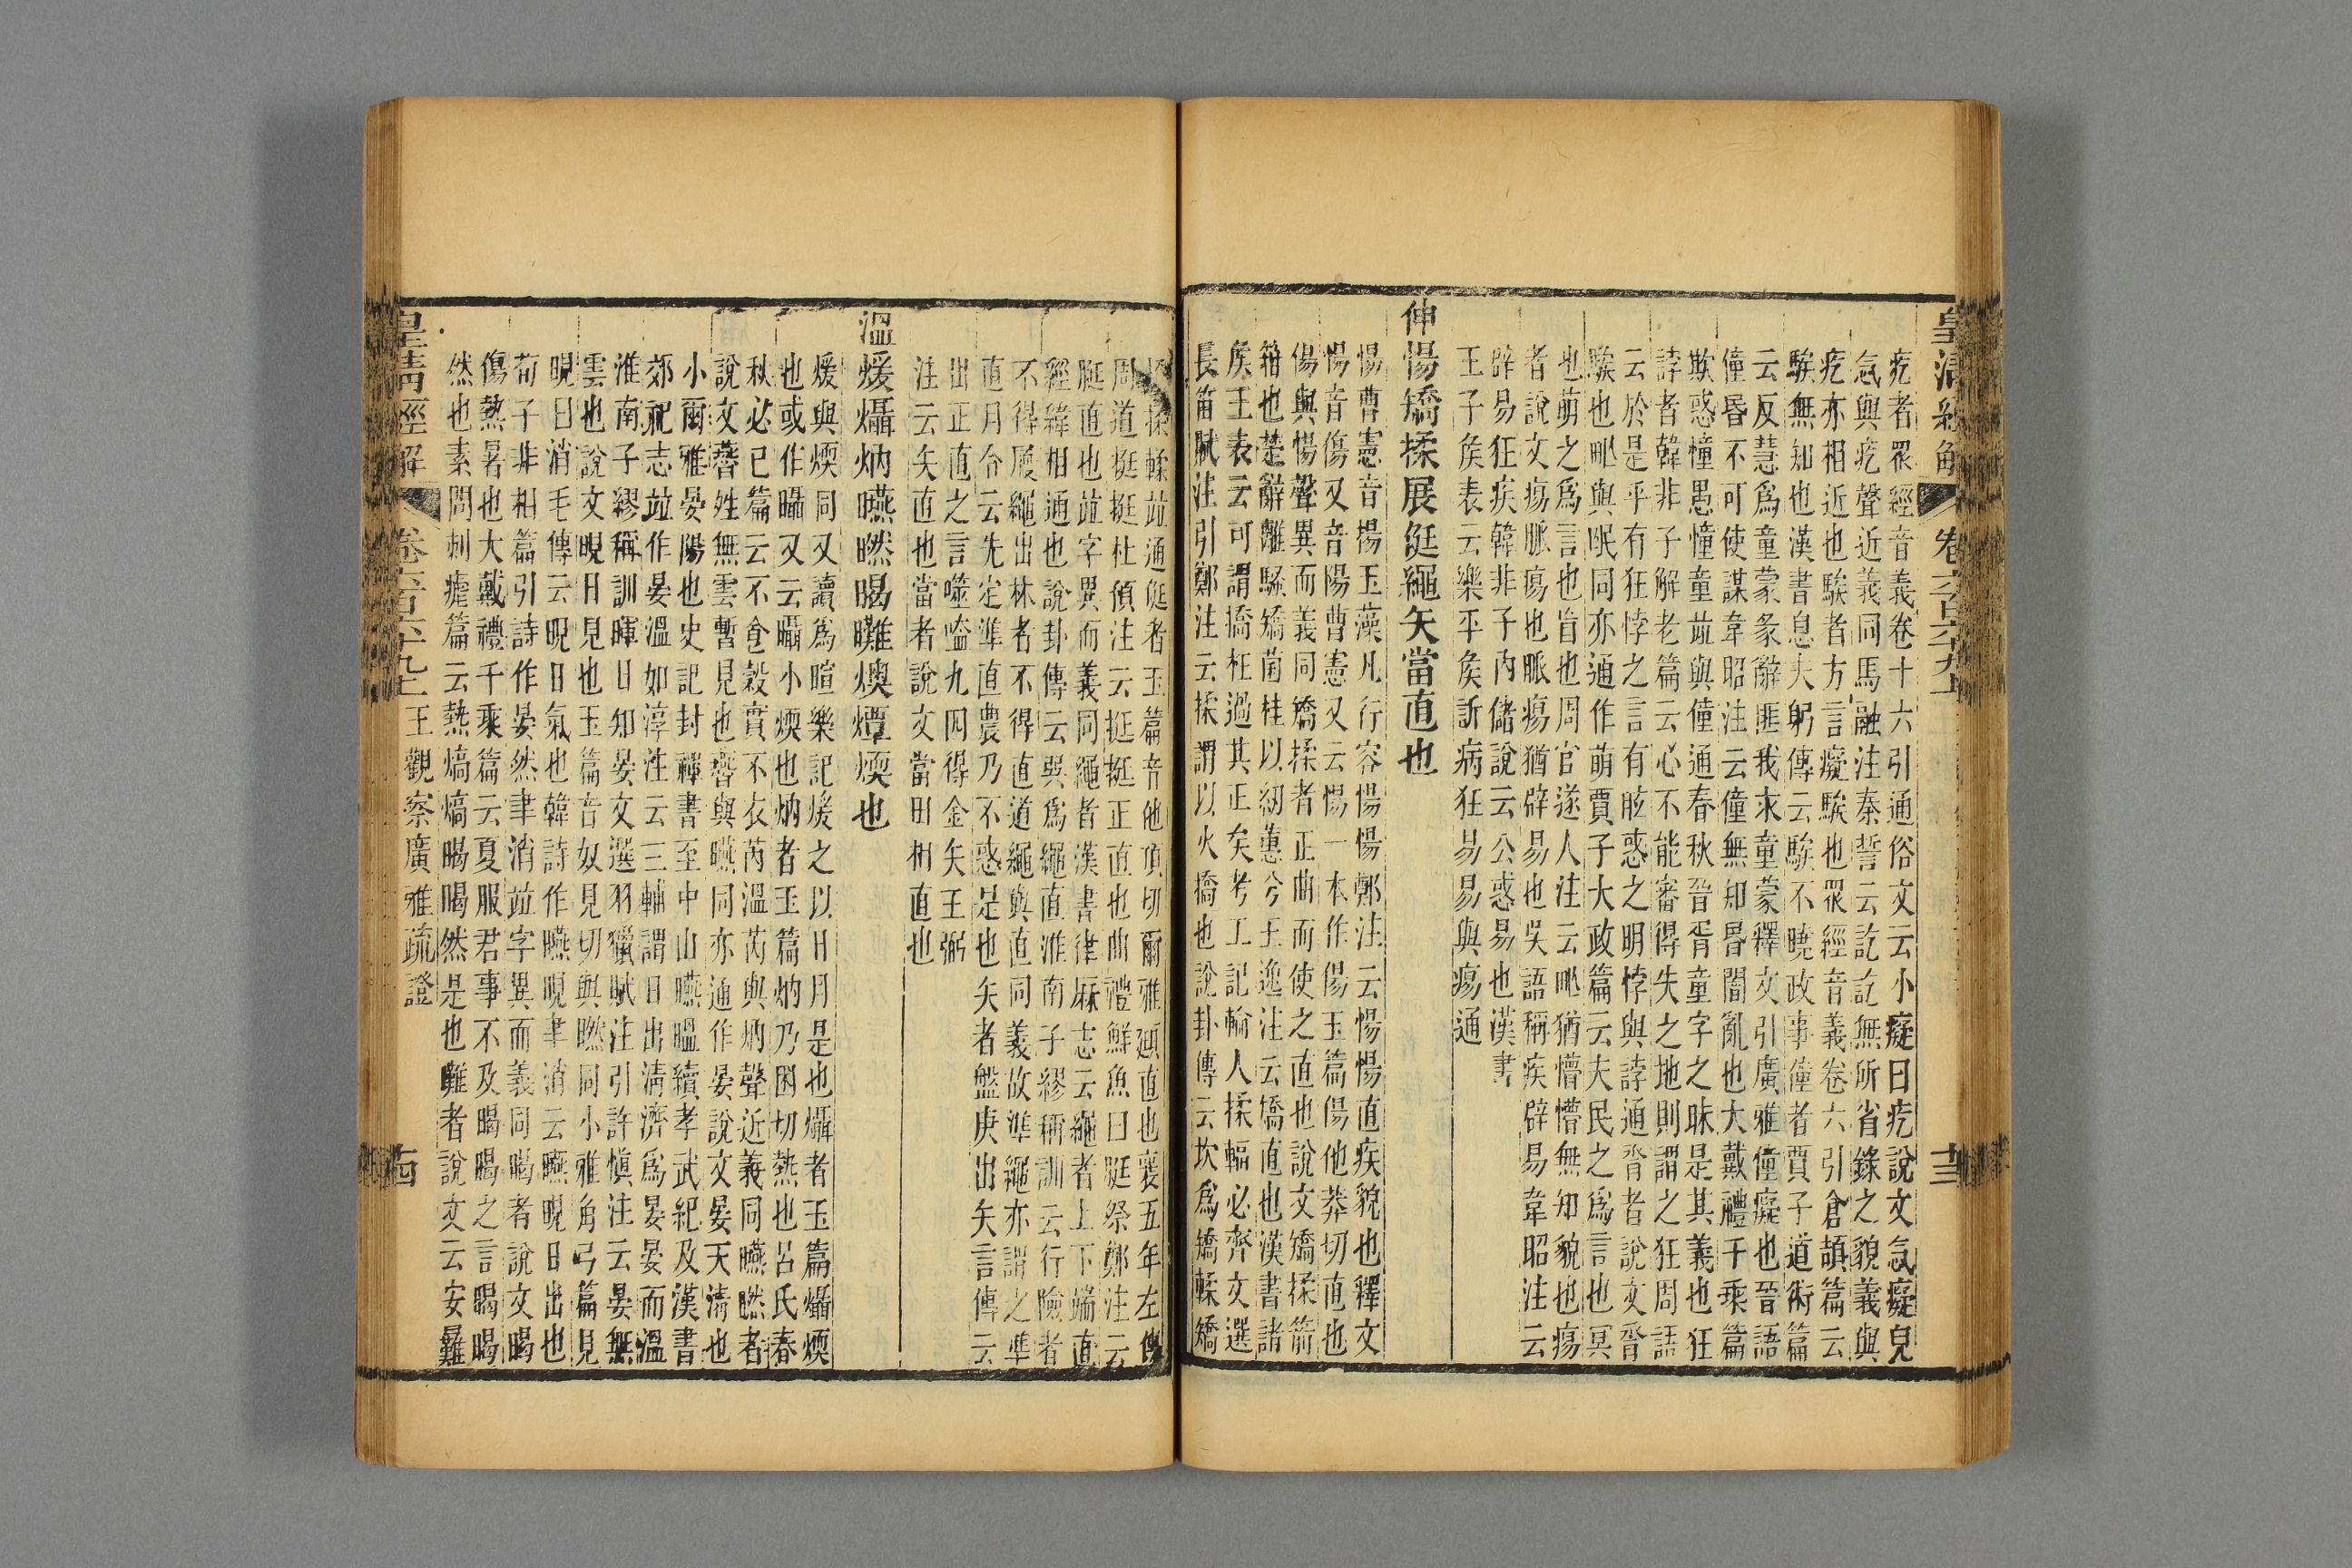 皇清經解
卷六百六十九上
十三
疙者眾經音義卷十六引通俗文云小癡曰疙說文忥癡皃
忥與疙聲近義同馬融注秦誓云訖訖無所省錄之貌義與
疙亦相近也騃者方言癡騃也眾經音義卷六引倉頡篇云
騃無知也漢書息夫躬傳云騃不曉政事僮者賈子道術篇
云反慧爲童蒙彖辭匪我求童蒙釋文引廣雅僮癡也晉語
僮昏不可使謀韋昭注云僮無知昏闇亂也大戴禮千乘篇
欺惑憧愚憧童竝與僮通春秋晉胥童字之昧是其義也狂
誖者韓非子解老篇云心不能審得失之地則謂之狂周語
云於是乎有狂悖之言有眩惑之明悖與誖通㱪者說文㱪
騃也甿與氓同亦通作萌賈子大政篇云夫民之爲言也冥
也萌之爲言也盲也周官遂人注云甿猶懵懵無知貌也瘍
者說文瘍脈瘍也脈瘍猶辟易也吳語稱疾辟易韋昭注云
辟易狂疾韓非子內儲說云公惑易也漢書
王子矦表云樂平矦訢病狂易易與瘍通
伸愓矯揉展侹繩矢當直也
愓曹憲音揚玉藻凡行容愓愓鄭注云愓愓直疾貌也釋文
愓音傷又音陽曹憲又云愓一本作偒玉篇偒他莽切直也
偒與愓聲異而義同矯揉者正曲而使之直也說文矯揉箭
箝也楚辭離騷矯菌桂以紉蕙兮王逸注云矯直也漢書諸
矦王表云可謂撟枉過其正矣考工記輪人揉輻必齊文選
長笛賦注引鄭注云揉謂以火撟也說卦傳云坎爲矯輮矯
揉輮竝通侹者玉篇音他頂切爾雅頲直也襄五年左傳
周道挺挺杜預注云挺挺正直也曲禮鮮魚曰脡祭鄭注云
脡直也竝字異而義同繩者漢書律厤志云繩者上下端直
經緯相通也說卦傳云巽爲繩直淮南子繆稱訓云行險者
不得履繩出林者不得直道繩與直同義故準繩亦謂之準
直月令云先定準直農乃不惑是也矢者盤庚出矢言傳云
出正直之言噬嗑九四得金矢王弼
注云矢直也當者說文當田相直也
溫煖㸎炳曣㬗暍㬮燠燂煗也
煖與煗同又讀爲暄樂記煖之以日月是也㸎者玉篇㸎煗
也或作㬤又云㬤小煗也炳者玉篇炳乃困切熱也呂氏春
秋必已篇云不食穀實不衣芮溫芮與炳聲近義同曣㬗者
說文㬫姓無雲暫見也㬫與曣同亦通作晏說文晏天清也
小爾雅晏陽也史記封禪書至中山曣㬈續孝武紀及漢書
郊祀志竝作晏溫如淳注云三輔謂日出清濟爲晏晏而溫
淮南子繆稱訓暉日知晏文選羽獵賦注引許愼注云晏無
雲也說文晛日見也玉篇音奴見切與㬗同小雅角弓篇見
晛曰消毛傳云晛日氣也韓詩作曣晛聿消云曣晛日出也
荀子非相篇引詩作晏然聿消竝字異而義同暍者說文暍
傷熱暑也大戴禮千乘篇云夏服君事不及暍暍之言暍暍
然也素問刺瘧篇云熱熇熇暍暍然是也㬮者說文云安㬮
皇清經解
卷六百六十九上 王觀察廣雅疏證
十四